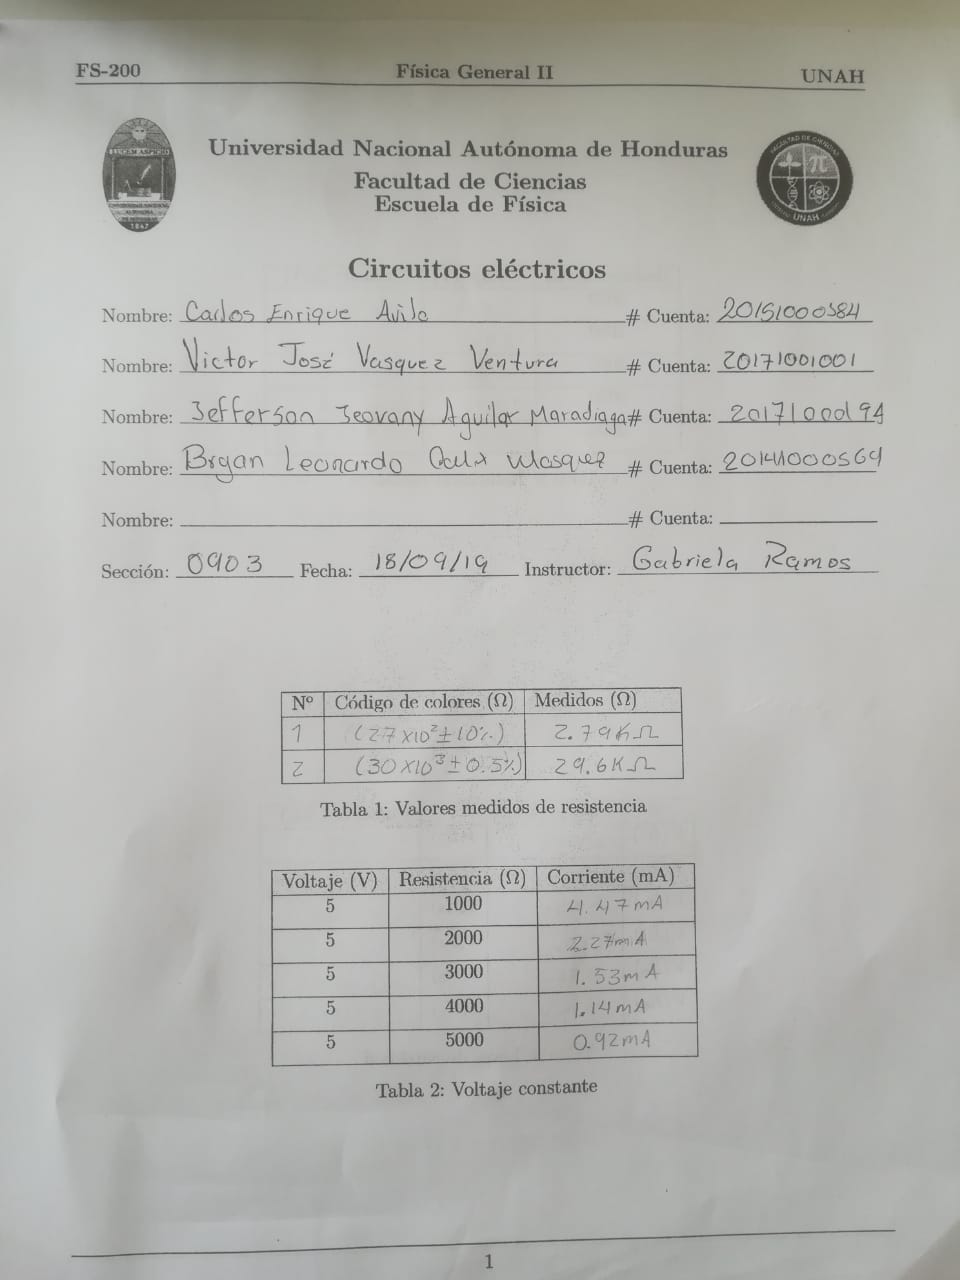 FS-200 Física General II UNAH
Universidad Nacional Autónoma de Honduras
Facultad de Ciencias
Escuela de Física
LUCEM ASPICIO
1847
FACULTAD DE CIENCIAS
UNAH
Circuitos eléctricos
Nombre: Carlos Enrique Avila # Cuenta: 20151000384
Nombre: Victor José Vasquez Ventura # Cuenta: 20171001001
Nombre: Jefferson Jeovany Aguilar Maradiaga # Cuenta: 20171000194
Nombre: Bryan Leonardo # Cuenta: 20141000564
Nombre: # Cuenta:
Sección: 0903 Fecha: 18/09/19 Instructor: Gabriela Ramos
Nº Código de colores (Ω) Medidos (Ω)
1 (27 x10² ± 10%) 2.79KΩ
2 (30 x10³ ± 0.5%) 29.6KΩ
Tabla 1: Valores medidos de resistencia
Voltaje (V) Resistencia (Ω) Corriente (mA)
5 1000 4.47mA
5 2000 2.27mA
5 3000 1.53mA
5 4000 1.14mA
5 5000 0.92mA
Tabla 2: Voltaje constante
1